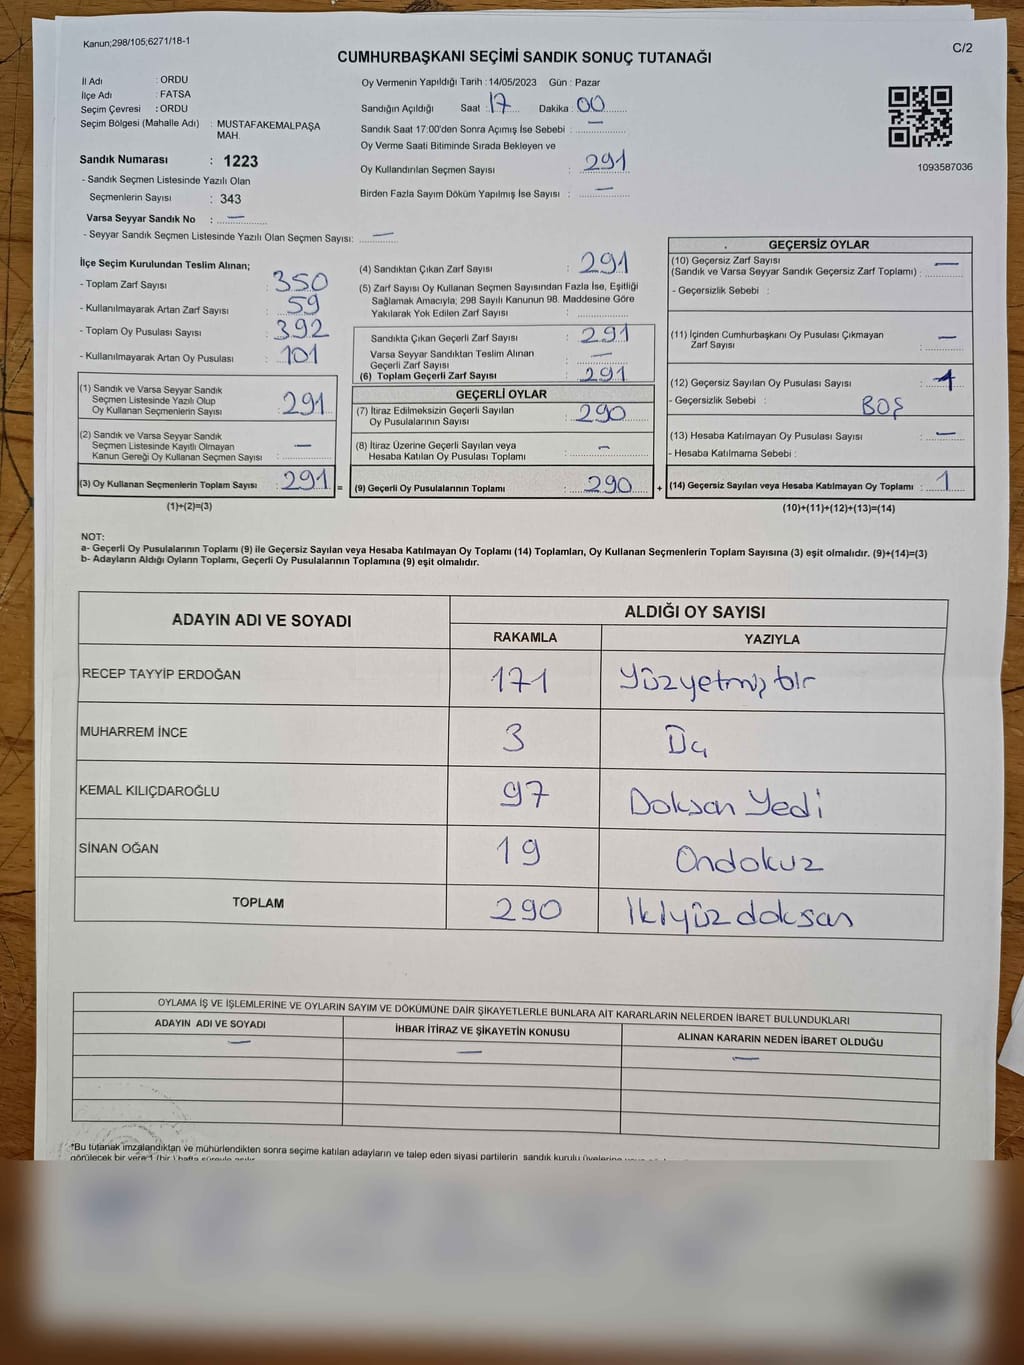 Kanun;298/105;6271/18-1
C/2
CUMHURBAŞKANI SEÇİMİ SANDIK SONUÇ TUTANAĞI
İl Adı : ORDU
İlçe Adı : FATSA
Seçim Çevresi : ORDU
Seçim Bölgesi (Mahalle Adı) : MUSTAFAKEMALPAŞA
MAH.
Sandık Numarası : 1223
- Sandık Seçmen Listesinde Yazılı Olan
Seçmenlerin Sayısı : 343
Varsa Seyyar Sandık No : —
- Seyyar Sandık Seçmen Listesinde Yazılı Olan Seçmen Sayısı: —
Oy Vermenin Yapıldığı Tarih : 14/05/2023 Gün : Pazar
Sandığın Açıldığı Saat : 17 Dakika : 00
Sandık Saat 17:00'den Sonra Açımış İse Sebebi : —
Oy Verme Saati Bitiminde Sırada Bekleyen ve
Oy Kullandırılan Seçmen Sayısı : 291
Birden Fazla Sayım Döküm Yapılmış İse Sayısı : —
1093587036
İlçe Seçim Kurulundan Teslim Alınan;
- Toplam Zarf Sayısı : 350
- Kullanılmayarak Artan Zarf Sayısı : 59
- Toplam Oy Pusulası Sayısı : 392
- Kullanılmayarak Artan Oy Pusulası : 101
(1) Sandık ve Varsa Seyyar Sandık
Seçmen Listesinde Yazılı Olup
Oy Kullanan Seçmenlerin Sayısı : 291
(2) Sandık ve Varsa Seyyar Sandık
Seçmen Listesinde Kayıtlı Olmayan
Kanun Gereği Oy Kullanan Seçmen Sayısı : —
(3) Oy Kullanan Seçmenlerin Toplam Sayısı : 291
(1)+(2)=(3)
(4) Sandıktan Çıkan Zarf Sayısı : 291
(5) Zarf Sayısı Oy Kullanan Seçmen Sayısından Fazla İse, Eşitliği
Sağlamak Amacıyla; 298 Sayılı Kanunun 98. Maddesine Göre
Yakılarak Yok Edilen Zarf Sayısı :
Sandıkta Çıkan Geçerli Zarf Sayısı : 291
Varsa Seyyar Sandıktan Teslim Alınan
Geçerli Zarf Sayısı : —
(6) Toplam Geçerli Zarf Sayısı : 291
GEÇERLİ OYLAR
(7) İtiraz Edilmeksizin Geçerli Sayılan
Oy Pusulalarının Sayısı : 290
(8) İtiraz Üzerine Geçerli Sayılan veya
Hesaba Katılan Oy Pusulası Toplamı : —
= (9) Geçerli Oy Pusulalarının Toplamı : 290
GEÇERSİZ OYLAR
(10) Geçersiz Zarf Sayısı
(Sandık ve Varsa Seyyar Sandık Geçersiz Zarf Toplamı) : —
- Geçersizlik Sebebi :
(11) İçinden Cumhurbaşkanı Oy Pusulası Çıkmayan
Zarf Sayısı : —
(12) Geçersiz Sayılan Oy Pusulası Sayısı : 1
- Geçersizlik Sebebi : BOŞ
(13) Hesaba Katılmayan Oy Pusulası Sayısı : —
- Hesaba Katılmama Sebebi :
+ (14) Geçersiz Sayılan veya Hesaba Katılmayan Oy Toplamı : 1
(10)+(11)+(12)+(13)=(14)
NOT:
a- Geçerli Oy Pusulalarının Toplamı (9) ile Geçersiz Sayılan veya Hesaba Katılmayan Oy Toplamı (14) Toplamları, Oy Kullanan Seçmenlerin Toplam Sayısına (3) eşit olmalıdır. (9)+(14)=(3)
b- Adayların Aldığı Oyların Toplamı, Geçerli Oy Pusulalarının Toplamına (9) eşit olmalıdır.
ADAYIN ADI VE SOYADI ALDIĞI OY SAYISI
RAKAMLA YAZIYLA
RECEP TAYYİP ERDOĞAN 171 Yüzyetmiş bir
MUHARREM İNCE 3 Üç
KEMAL KILIÇDAROĞLU 97 Doksan Yedi
SİNAN OĞAN 19 Ondokuz
TOPLAM 290 İkiyüz doksan
OYLAMA İŞ VE İŞLEMLERİNE VE OYLARIN SAYIM VE DÖKÜMÜNE DAİR ŞİKAYETLERLE BUNLARA AİT KARARLARIN NELERDEN İBARET BULUNDUKLARI
ADAYIN ADI VE SOYADI İHBAR İTİRAZ VE ŞİKAYETİN KONUSU ALINAN KARARIN NEDEN İBARET OLDUĞU
— — —
*Bu tutanak imzalandıktan ve mühürlendikten sonra seçime katılan adayların ve talep eden siyasi partilerin sandık kurulu üyelerine